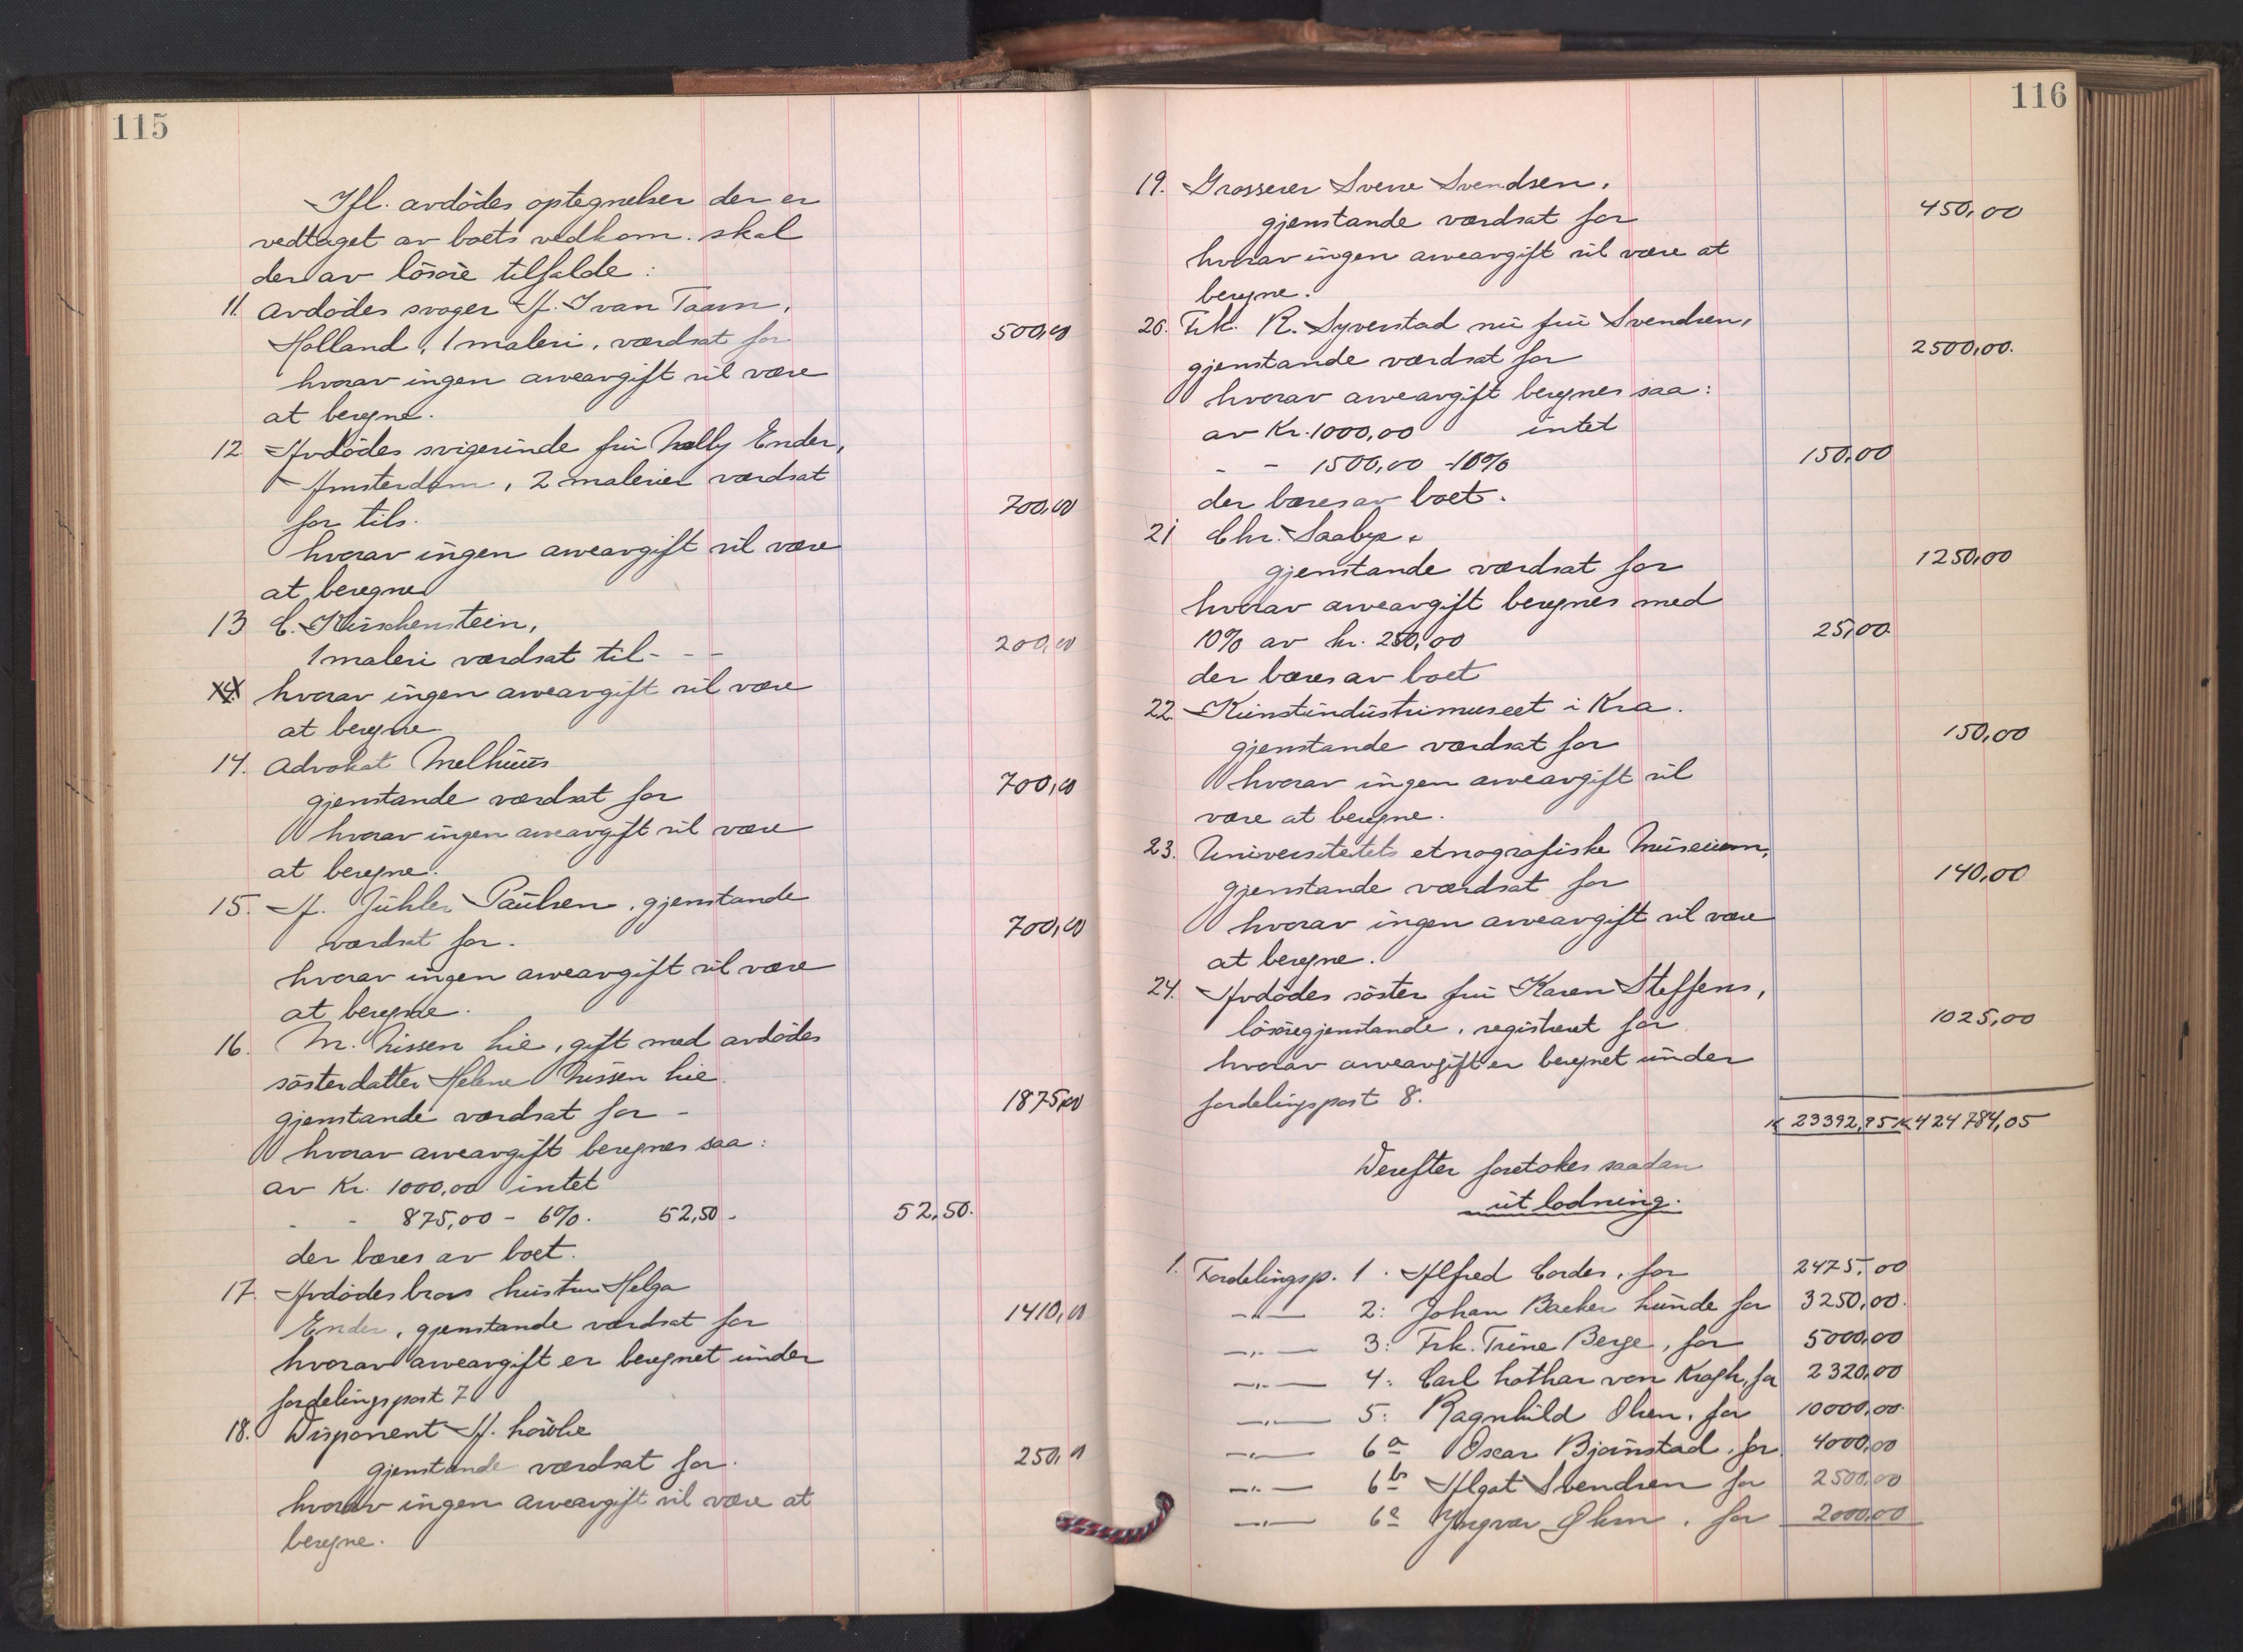 115
Ifl. avdödes optegnelser der er
vedtaget av boets vedkom. skal
der av lösöre tilfalde:
11. avdödes svager A. J van Taam,
Holland, 1 maleri, værdsat for 500,00
hvorav ingen arveavgift vil være
at beregne.
12 Avdödes svigerinde frú Nelly Ender,
Amsterdam, 2 malerier værdsat
for tils. 700,00
hvorav ingen arveavgift vil være
at beregne
13 C. Kirschenstein,
1 maleri værdsat til - - - 200,00
hvorav ingen arveavgift vil være
at beregne
14. Advokat Melhuus
gjenstande værdsat for 700,00
hvorav ingen arveavgift vil være
at beregne.
15. A. Jühler Paulsen, gjenstande
værdsat for. 700,00
hvorav ingen arveavgift vil være
at beregne.
16. M. Nissen Lie, gift med avdödes
sösterdatter Helene Nissen Lie
gjenstande værdsat for - 1875,00
hvorav arveavgift beregnes saa:
av Kr. 1000,00 intet
- - 875,00 - 6%. 52,50 - 52,50.
der bæres av boet.
17. Avdödes brors hustru Helga
Ender, gjenstande værdsat for 1410,00
hvorav arveavgift er beregnet under
fordelingspost 7
18. Disponent A.
gjenstande værdsat for. 250,00
hvorav ingen arveavgift vil være at
beregne.
116
19. Grosserer Sverre Svendsen,
gjenstande værdsat for 450,00
hvorav ingen arveavgift vil være at
beregne.
20. Frk. R. Syverstad nu frú Svendsen,
gjenstande værdsat for 2500,00.
hvorav arveavgift beregnes saa:
av Kr. 1000,00 intet
- - 1500,00 - 10% 150,00
der bæres av boet.
21 Chr. Saabye.
gjenstande værdsat for 1250,00
hvorav arveavgift beregnes med
10% av kr. 250,00 25,00
der bæres av boet
22. Kunstindustrimuseet i Kra.
gjenstande værdsat for 150,00
hvorav ingen arveavgift vil
være at beregne.
23. Universitetets etnografiske Museum,
gjenstande værdsat for 140,00
hvorav ingen arveavgift vil være
at beregne.
24. Avdödes söster frú Karen Steffens,
lösöregjenstande, registreret for 1025,00
hvorav arveavgift er beregnet under
fordelingspost 8.
K 23392,95 K 424784,05
Derefter foretokes saadan
utlodning.
1. Fordelingsp. 1. Alfred Cordes, for 2475,00
-"- 2: Johan Backer Lunde for 3250,00.
-"- 3: Frk. Trine Berge, for 5000,00
-"- 4: Carl Lothar von Krogh, for 2320,00
-"- 5: Ragnhild Olsen, for 10000,00.
-"- 6a Oscar Bjørnstad, for 4000,00
-"- 6b Algot Svendsen for 2500,00
-"- 6c Yngvar Øhrn, for 2000,00